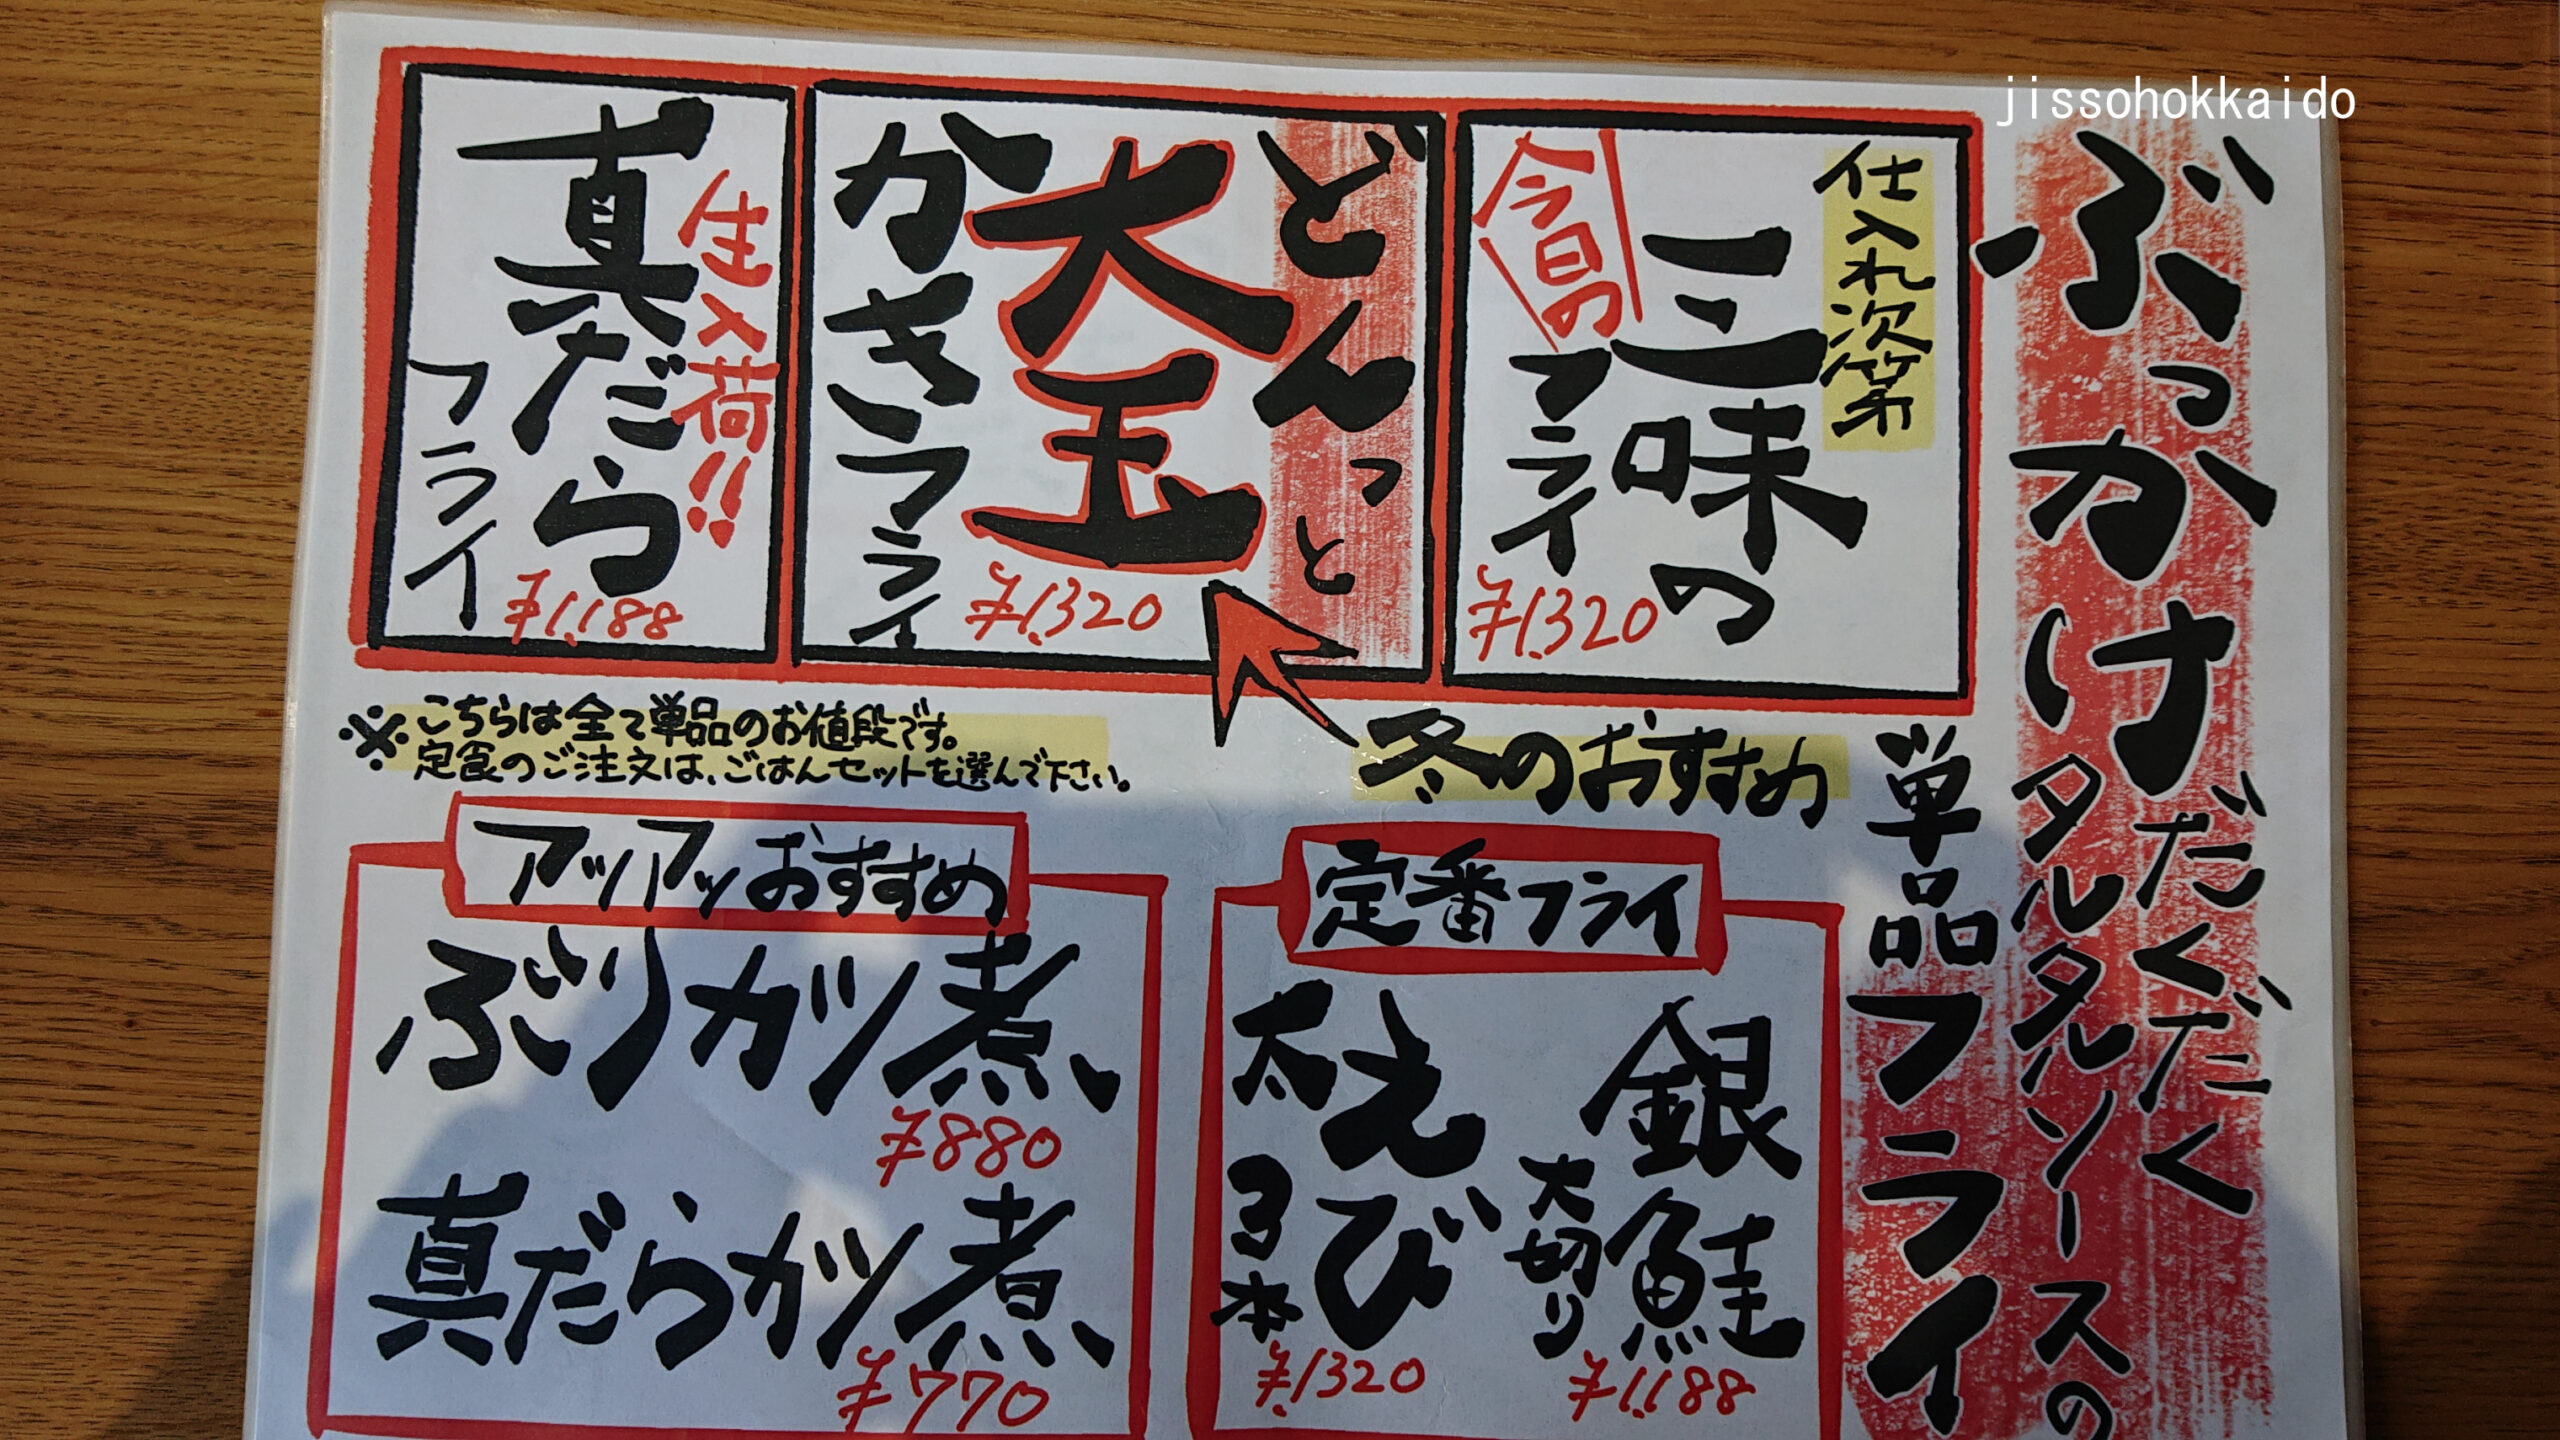 jissohokkaido
ぶっかけだくだく
タルタルソースの
単品フライ
仕入れ次第
三味の
今日の
フライ
¥1,320
どんっと
大玉
かきフライ
¥1,320
生入荷!!
真だら
フライ
¥1,188
冬のおすすめ
※こちらは全て単品のお値段です。
定食のご注文は、ごはんセットを選んで下さい。
定番フライ
銀鮭
大切り
¥1,188
えび
太
3本
¥1,320
アツアツおすすめ
ぶりカツ煮
¥880
真だらカツ煮
¥770